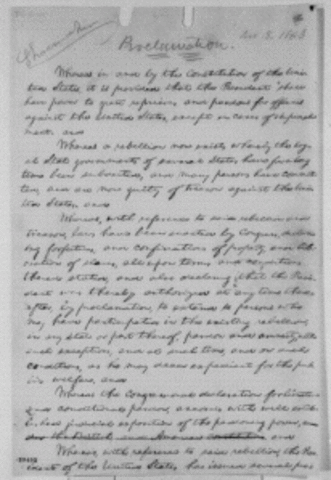 Dec. 8. 1863
Proclamation.
Whereas in and by the Constitution of the Uni-
ted States, it is provided that the President "shall
have power to grant reprieves and pardons for offences
against the United States, except in cases of impeach-
ment." and
Whereas a rebellion now exists whereby the loy-
al State governments of several States have for a long
time been subverted, and many persons have commit-
ted, and are now guilty of treason against the Uni-
ted States; and
Whereas, with reference to said rebellion and
treason, laws have been enacted by Congress, declar-
ing forfeitures, and confiscation of property, and lib-
eration of slaves, all upon terms and conditions
therein stated, and also declaring that the Pres-
ident was thereby authorized at any time there-
after, by proclamation, to extend to persons who
may have participated in the existing rebellion,
in any state or part thereof, pardon and amnesty, with
such exceptions, and at such times, and on such
conditions, as he may deem expedient for the pub-
lic welfare; and
Whereas the Congressional declaration for limited
and conditional pardon, accords with well estab-
judicial exposition of the pardoning power,
and
Whereas, with reference to said rebellion, the Pres-
ident of the United States has issued several pro